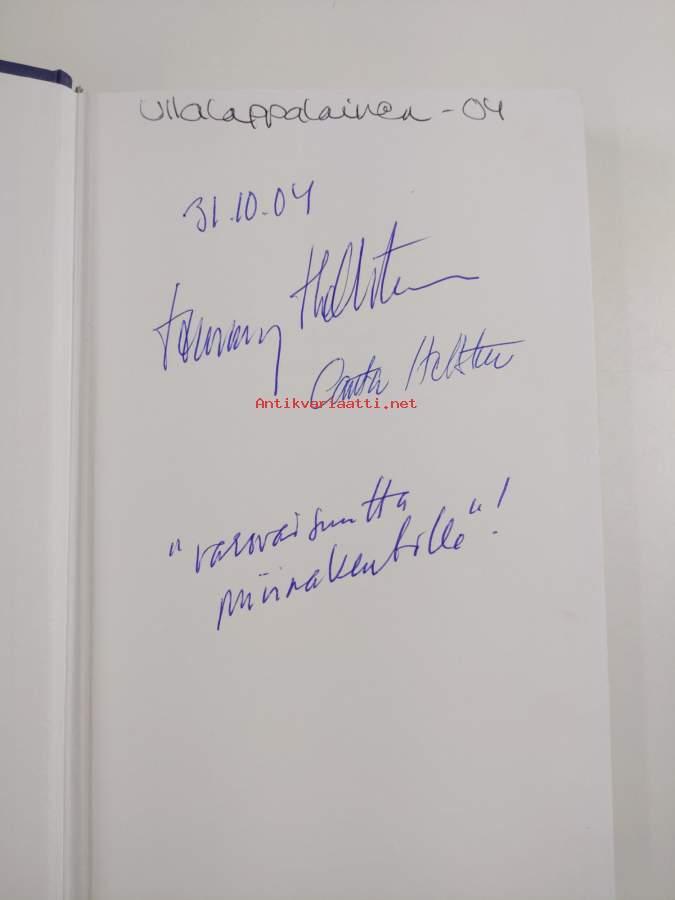 Ulla Lappalainen -04
31.10.04
Tommy Hellsten
Hellsten
Antikvariaatti.net
"varovaisuutta
miinakentille"!